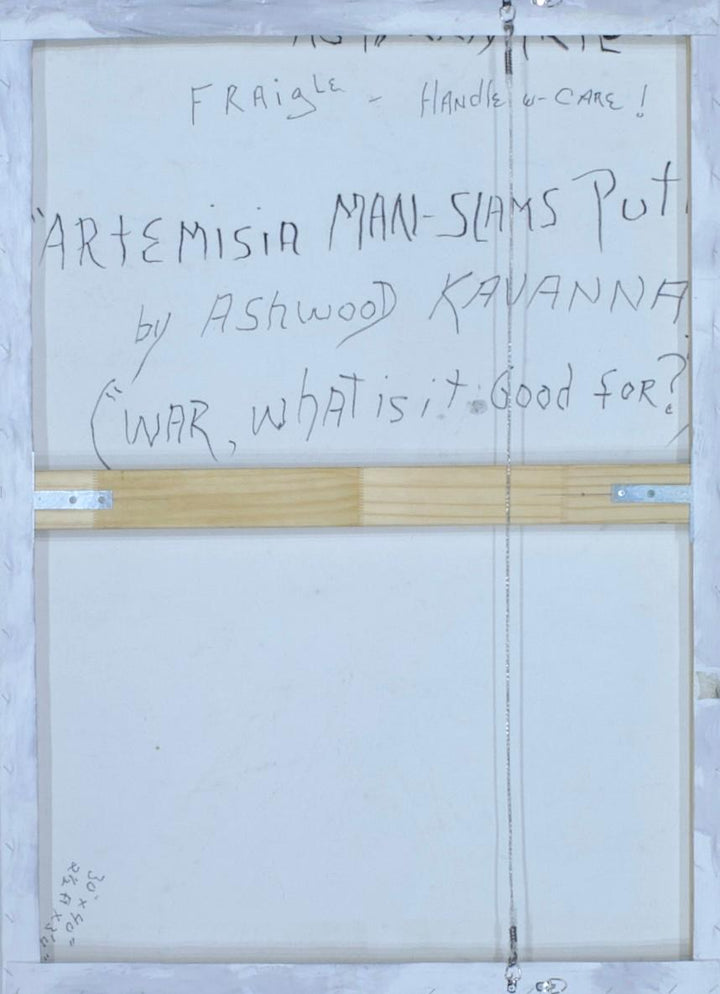 FRAigLE - HANDLE w- CARE!
"ARtEMiSiA MAN-SLAMS Put
by ASHWOOD KAVANNA
("WAR, WhAT is it Good foR?
30" x 40"